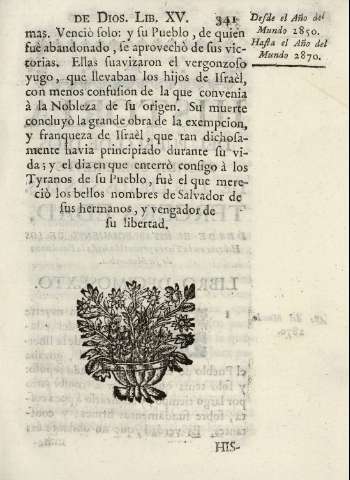 DE DIOS. LIB. XV. 341
Desde el Año del
Mundo 2850.
Hasta el Año del
Mundo 2870.
mas. Venciò solo: y su Pueblo, de quien
fuè abandonado, se aprovechò de sus vic-
torias. Ellas suavizaron el vergonzoso
yugo, que llevaban los hijos de Israèl,
con menos confusion de la que convenia
à la Nobleza de su origen. Su muerte
concluyò la grande obra de la exempcion,
y franqueza de Israèl, que tan dichosa-
mente havia principiado durante su vi-
da; y el dia en que enterrò consigo à los
Tyranos de su Pueblo, fuè el que mere-
ciò los bellos nombres de Salvador de
sus hermanos, y vengador de
su libertad.
HIS-